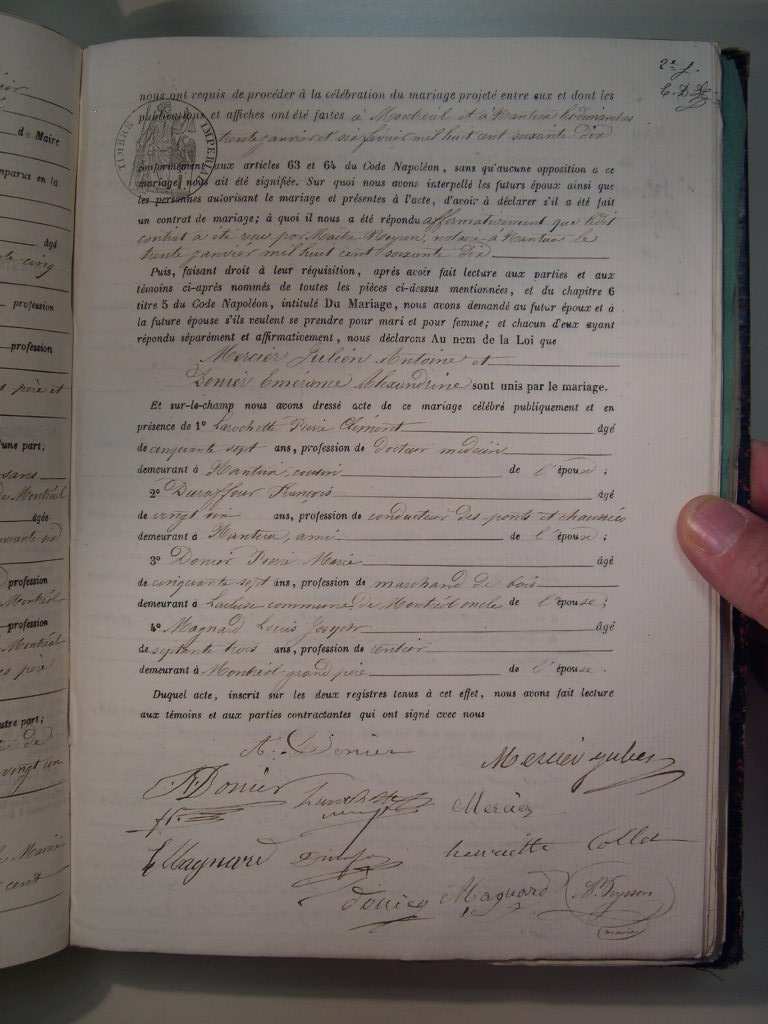 2e f.
nous ont requis de procéder à la célébration du mariage projeté entre eux et dont les
publications et affiches ont été faites à Montréal et à Nantua les dimanches
trente janvier et six février mil huit cent soixante dix
TIMBRE IMPERIAL
conformément aux articles 63 et 64 du Code Napoléon, sans qu'aucune opposition à ce
mariage nous ait été signifiée. Sur quoi nous avons interpellé les futurs époux ainsi que
les personnes autorisant le mariage et présentes à l'acte, d'avoir à déclarer s'il a été fait
un contrat de mariage; à quoi il nous a été répondu affirmativement que ledit
contrat a été reçu par Maître notaire à Nantua le
trente janvier mil huit cent soixante dix
Puis, faisant droit à leur réquisition, après avoir fait lecture aux parties et aux
témoins ci-après nommés de toutes les pièces ci-dessus mentionnées, et du chapitre 6
titre 5 du Code Napoléon, intitulé Du Mariage, nous avons demandé au futur époux et à
la future épouse s'ils veulent se prendre pour mari et pour femme; et chacun d'eux ayant
répondu séparément et affirmativement, nous déclarons Au nom de la Loi que
Mercier Julien Antoine et
Donier Emerance Alexandrine sont unis par le mariage.
Et sur-le-champ nous avons dressé acte de ce mariage célébré publiquement et en
présence de 1° Larochette Pierre Clément âgé
de cinquante sept ans, profession de docteur médecin
demeurant à Nantua, cousin de l'épouse;
2° Duraffour François âgé
de vingt six ans, profession de conducteur des ponts et chaussées
demeurant à Nantua, ami de l'épouse;
3° Donier Marie âgé
de cinquante sept ans, profession de marchand de bois
demeurant à Lacluse commune de Montréal oncle de l'épouse;
4° Magnard Louis Joseph âgé
de septante trois ans, profession de rentier
demeurant à Montréal grand père de l'épouse.
Duquel acte, inscrit sur les deux registres tenus à cet effet, nous avons fait lecture
aux témoins et aux parties contractantes qui ont signé avec nous
A. Donier
Mercier Jules
Donier
Larochette
Mercier
Magnard
henriette Collet
donier Magnard
de Maire
comparus en la
âgé
profession
profession
d'une part,
âgée
profession
profession
autre part;